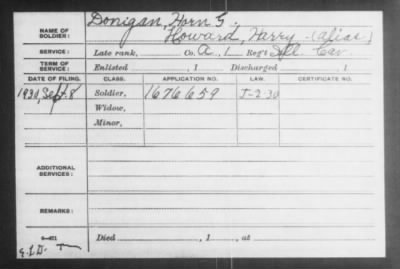 NAME OF SOLDIER: Donigan, Horn S.
Howard, Harry (alias)
SERVICE: Late rank, Co. A, 1 Reg't Ill. Cav.
TERM OF SERVICE: Enlisted , 1 Discharged , 1
DATE OF FILING. CLASS. APPLICATION NO. LAW. CERTIFICATE NO.
1930, Sept. 8 Soldier, 1676659 J-2-30
Widow,
Minor,
ADDITIONAL SERVICES:
REMARKS:
Died , 1 , at